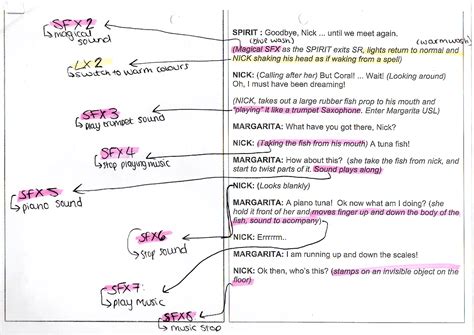 SFX 2
magical
sound
LX 2
switch to warm colours
SFX 3
play trumpet sound
SFX 4
stop playing music
SFX 5
piano sound
SFX6
stop sound
SFX7:
play Music
SFX8
music stop
SPIRIT : Goodbye, Nick ... until we meet again.
(blue wash) (warm wash)
(Magical SFX as the SPIRIT exits SR, lights return to normal and
NICK shaking his head as if waking from a spell)
NICK: (Calling after her) But Coral! ... Wait! (Looking around)
Oh, I must have been dreaming!
(NICK, takes out a large rubber fish prop to his mouth and
"playing" it like a trumpet Saxophone. Enter Margarita USL)
MARGARITA: What have you got there, Nick?
NICK: (Taking the fish from his mouth) A tuna fish!
MARGARITA: How about this? (she take the fish from nick, and
start to twist parts of it. Sound plays along)
NICK: (Looks blankly)
MARGARITA: A piano tuna! Ok now what am I doing? (she
hold it front of her and moves finger up and down the body of the
fish, sound to acompany)
NICK: Errrrrr..
MARGARITA: I am running up and down the scales!
NICK: Ok then, who's this? (stamps on an invisible object on the
floor)